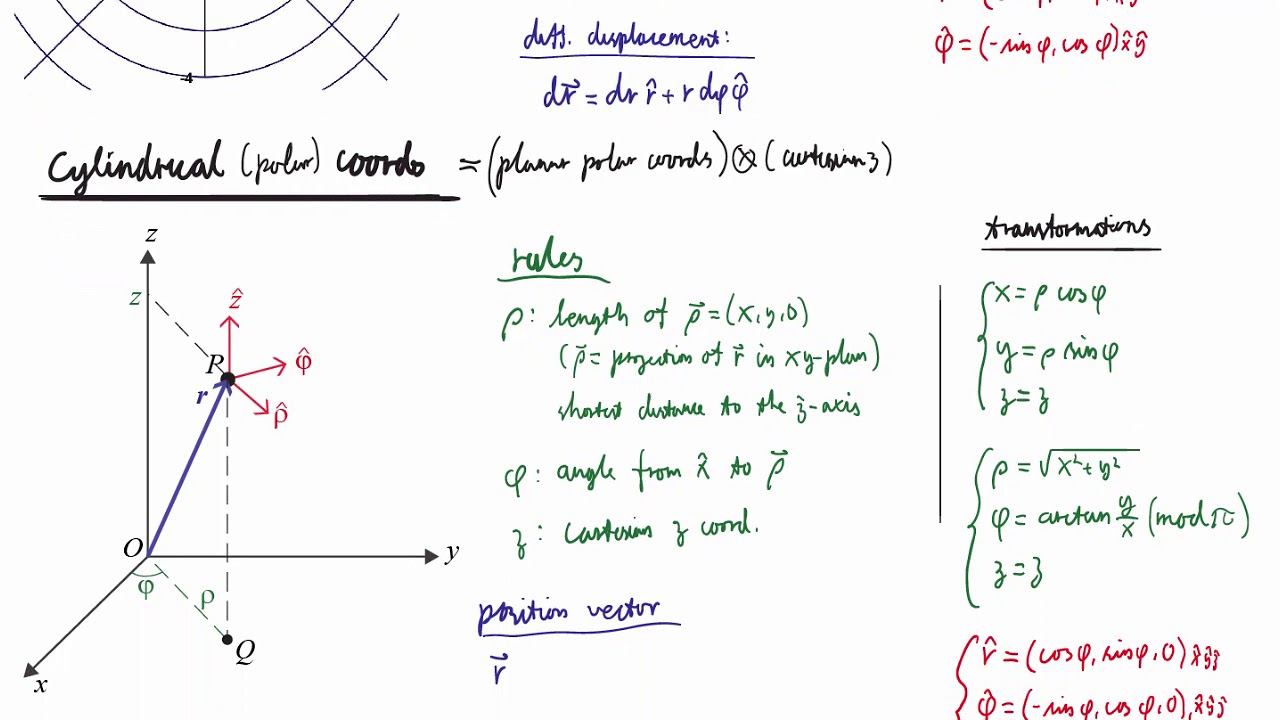 -4
diff. displacement:
dr⃗ = dr r̂ + r dφ φ̂
φ̂ = (-sin φ, cos φ)x̂ŷ
Cylindrical (polar) coords = (planar polar coords) ⊗ (cartesian z)
z
z
ẑ
P
φ̂
r
ρ̂
O
y
φ
ρ
Q
x
rules
ρ: length of ρ⃗ = (x, y, 0)
(ρ⃗ = projection of r⃗ in xy-plan)
shortest distance to the ẑ-axis
φ: angle from x̂ to ρ⃗
z: Cartesian z coord.
position vector
r⃗
transformations
x = ρ cos φ
y = ρ sin φ
z = z
ρ = √x² + y²
φ = arctan y/x (mod π)
z = z
r̂ = (cos φ, sin φ, 0)x̂ŷẑ
φ̂ = (-sin φ, cos φ, 0),x̂ŷẑ